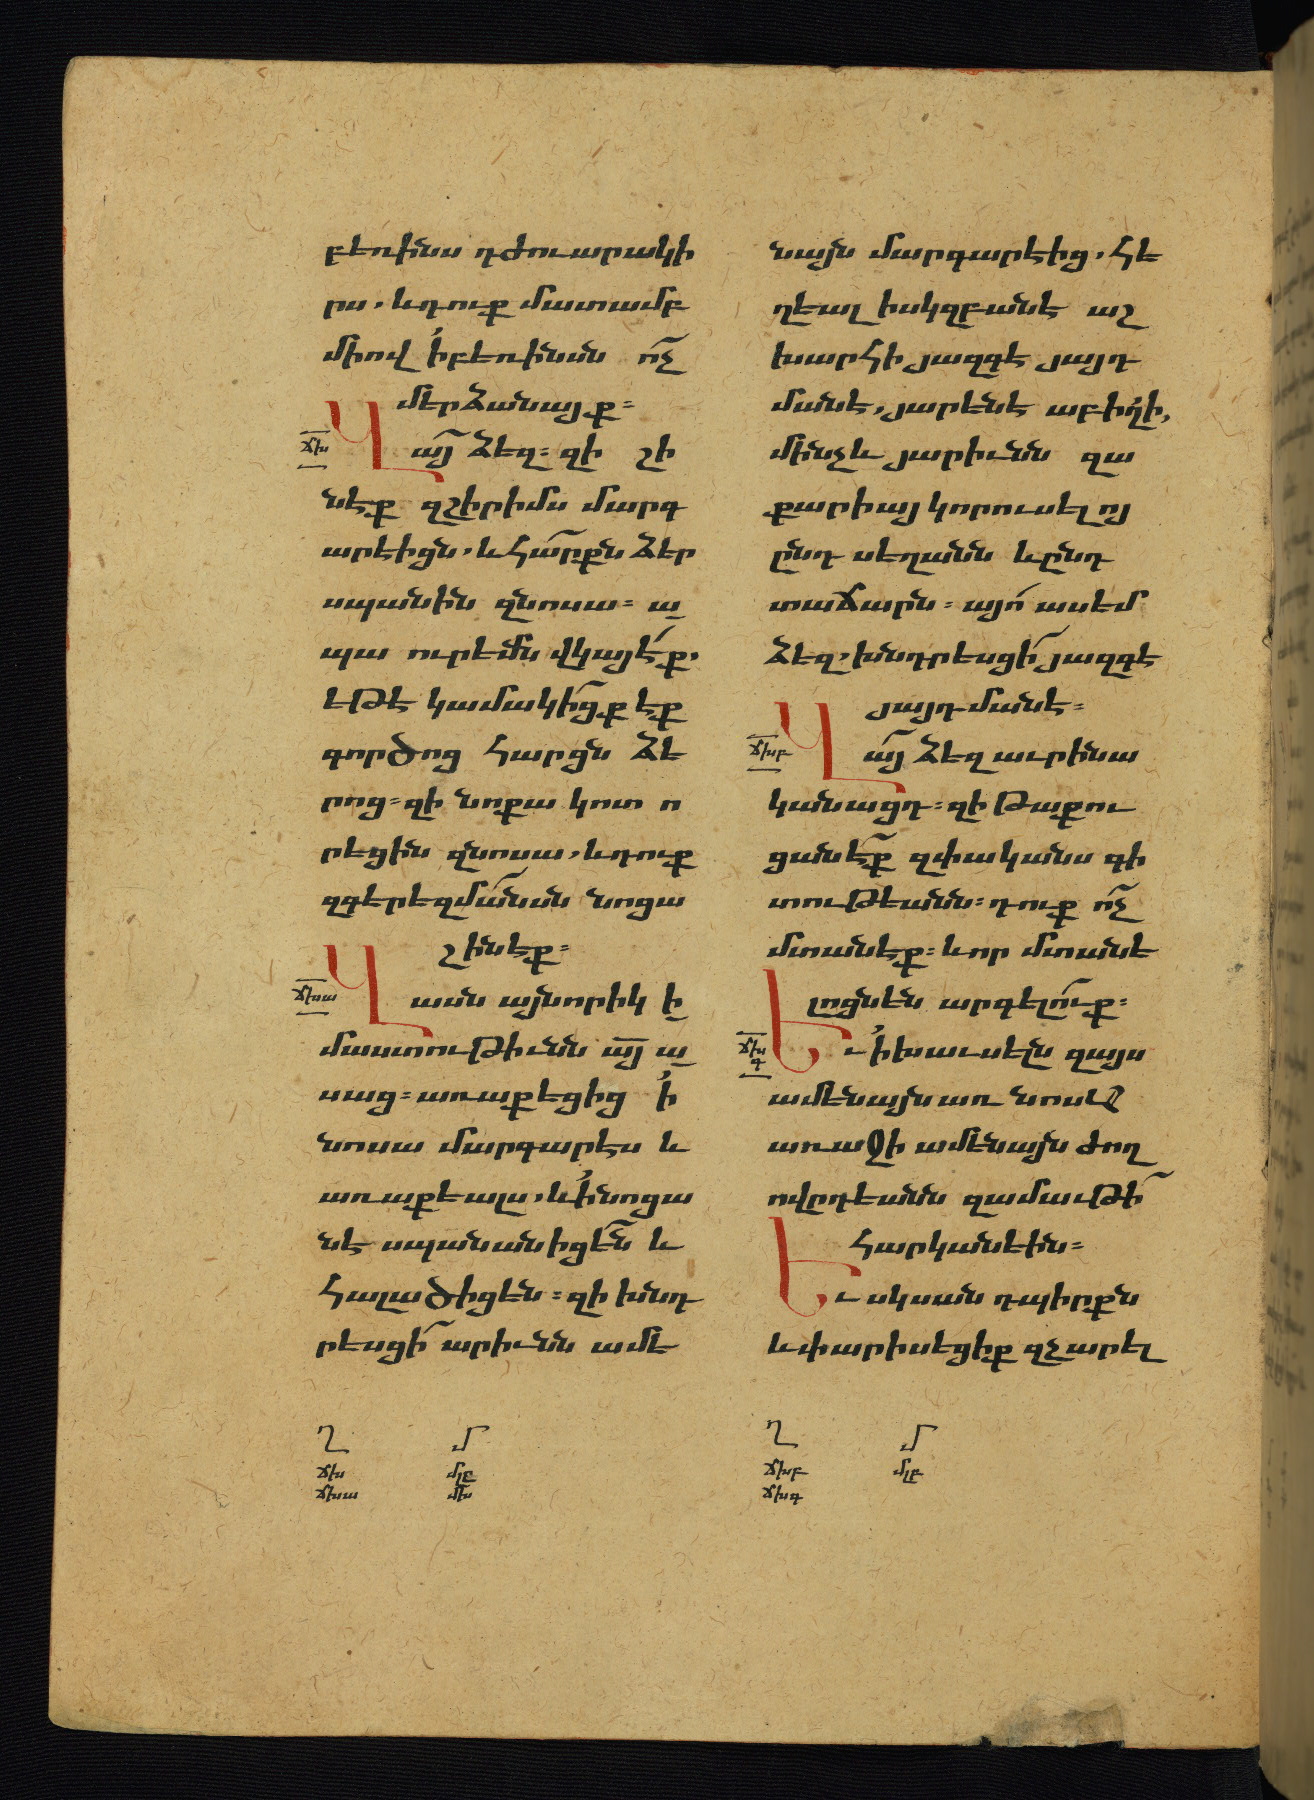 բեռինս դժուարակի
րս. և դուք մատամբ
միով ի բեռինսն ո՛չ
մերձանայք։
ճխ
Վա՜յ ձեզ։ զի շի
նէք զշիրիմս մարգ
արէիցն. և հա՜րքն ձեր
սպանին զնոսա։ ա
պա ուրեմն վկայէ՛ք.
եթէ կամակի՜ցք էք
գործոց հարցն ձե
րոց։ զի նոքա կոտ ո
րեցին զնոսա. և դուք
զգերեզմա՜նսն նոցա
շինէք։
ճխա
Վասն այնորիկ ի
մաստութիւնն ա՜յ ա
սաց։ առաքեցից ի
նոսա մարգարէս և
առաքեալս. և ինոցա
նէ սպանանիցե՜ն և
հալածիցեն։ զի խնդ
րեսցի՜ արիւնն ամե
նայն մարգարէից. հե
ղեալ իսկզբանէ աշ
խարհի յազգէ յայդ
մանէ, յարենէ աբելի,
մինչև յարիւնն զա
քարիայ կորուսելոյ
ընդ սեղանն և ընդ
տաճարն։ այո՛ ասեմ
ձեզ. խնդրեսցի՜ յազգէ
յայդմանէ։
ճխբ
Վա՜յ ձեզ աւրինա
կանացդ։ զի թաքու
ցանէ՜ք զփականս գի
տութեանն։ դուք ո՜չ
մտանէք։ և որ մտանե
լոցնեն արգելո՜ւք։
ճխգ
Եւ ի խաւսելն զայս
ամենայն առ նոսա
առաջի ամենայն ժող
ովրդեանն զամաւթի՜
հարկանէին։
Եւ սկսան դպիրքն
և փարիսեցիք զչարել
Ղ Մ
ճխ մլբ
ճխա մխ
Ղ Մ
ճխբ մլբ
ճխգ